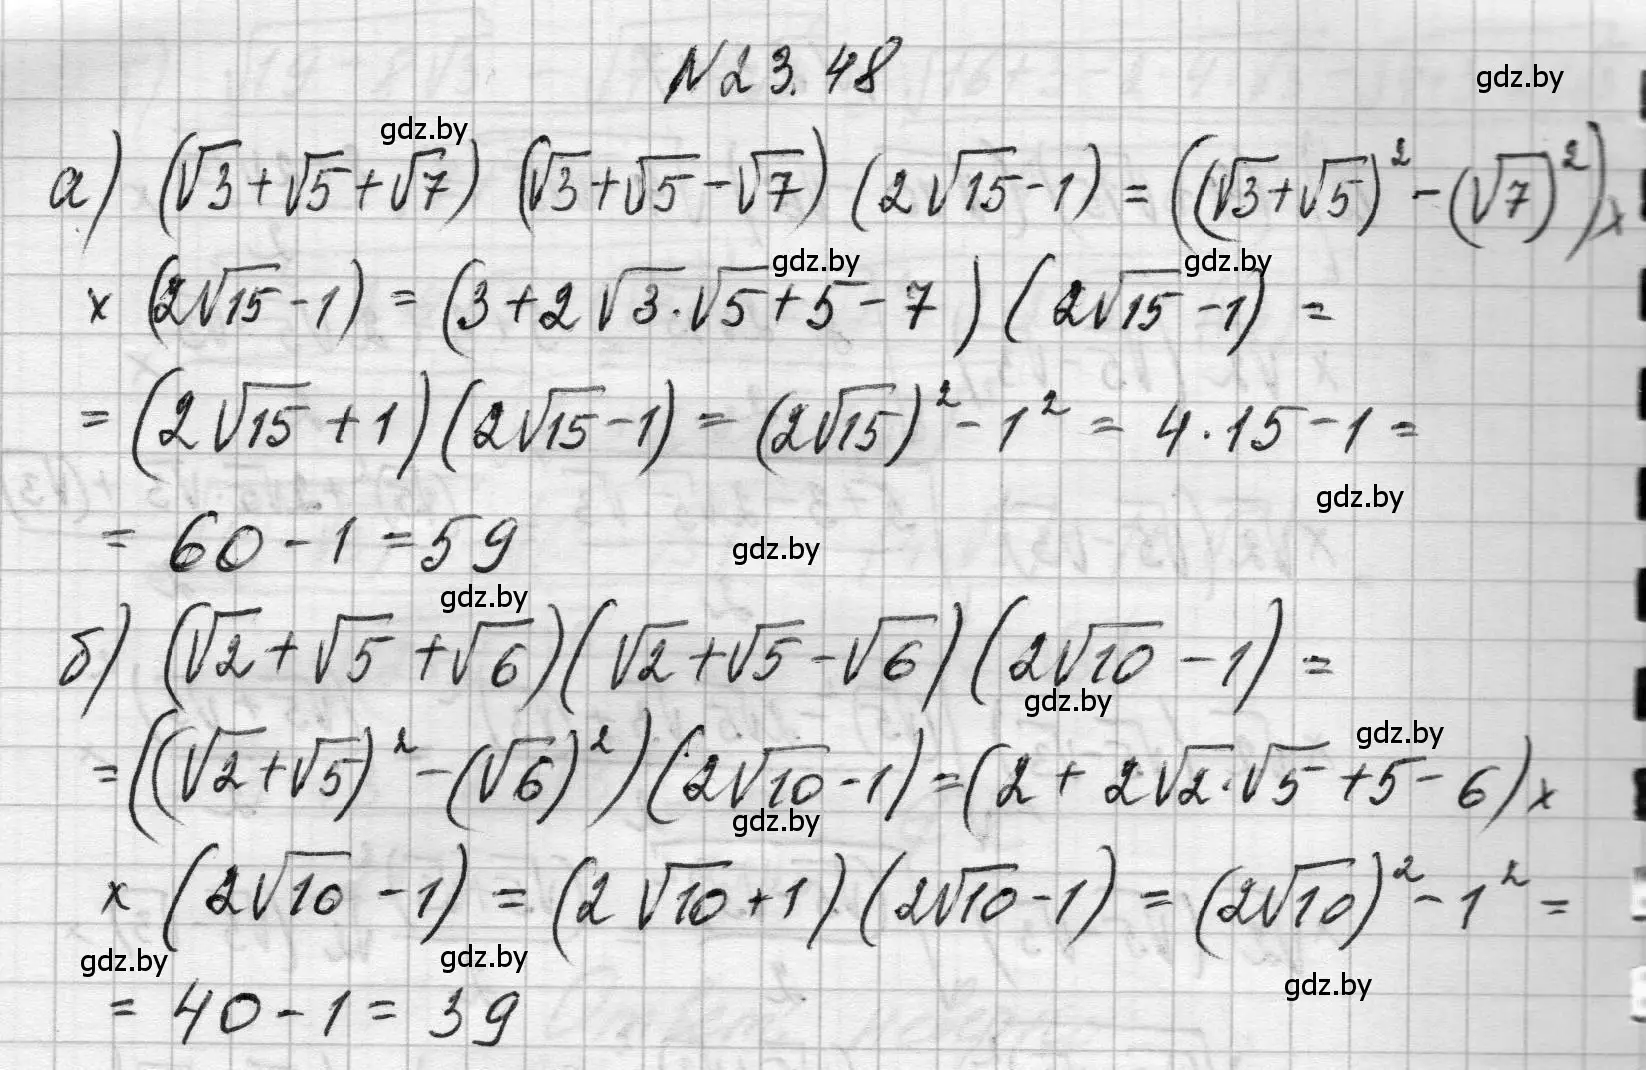 N23.48
gdz.by
gdz.by
а) (√3+√5+√7) (√3+√5-√7) (2√15-1) = ((√3+√5)²-(√7)²)x
gdz.by
gdz.by
x (2√15-1) = (3+2√3·√5+5-7) (2√15-1) =
= (2√15+1)(2√15-1) = (2√15)²-1² = 4·15-1 =
gdz.by
= 60-1=59
gdz.by
gdz.by
б) (√2+√5+√6)(√2+√5-√6)(2√10-1) =
gdz.by
gdz.by
=((√2+√5)²-(√6)²)(2√10-1)=(2+2√2·√5+5-6)x
gdz.by
x (2√10-1) = (2√10+1)(2√10-1) = (2√10)²-1² =
gdz.by
gdz.by
gdz.by
= 40-1= 39